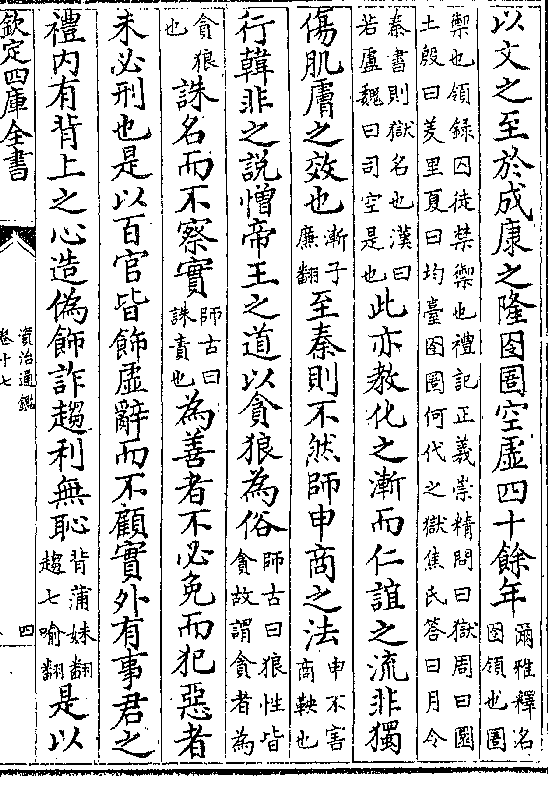 以文之至於成康之隆囹圄空虛四十餘年爾雅釋名囹領也圄
禦也領錄囚徒禁禦也禮記正義崇精問曰獄周曰圜土殷曰羑里夏曰均臺囹圄何代之獄焦氏答曰月令
秦書則獄名也漢曰若盧魏曰司空是也此亦教化之漸而仁誼之流非獨
傷肌膚之效也漸子廉翻至秦則不然師申商之法申不害商鞅也
行韓非之說憎帝王之道以貪狼為俗師古曰狼性皆貪故謂貪者為
貪狼也誅名而不察實師古曰誅責也為善者不必免而犯惡者
未必刑也是以百官皆飾虛辭而不顧實外有事君之
禮内有背上之心造偽飾詐趨利無恥背蒲妹翻趨七喻翻是以
欽定四庫全書
資治通鑑
卷十七
四